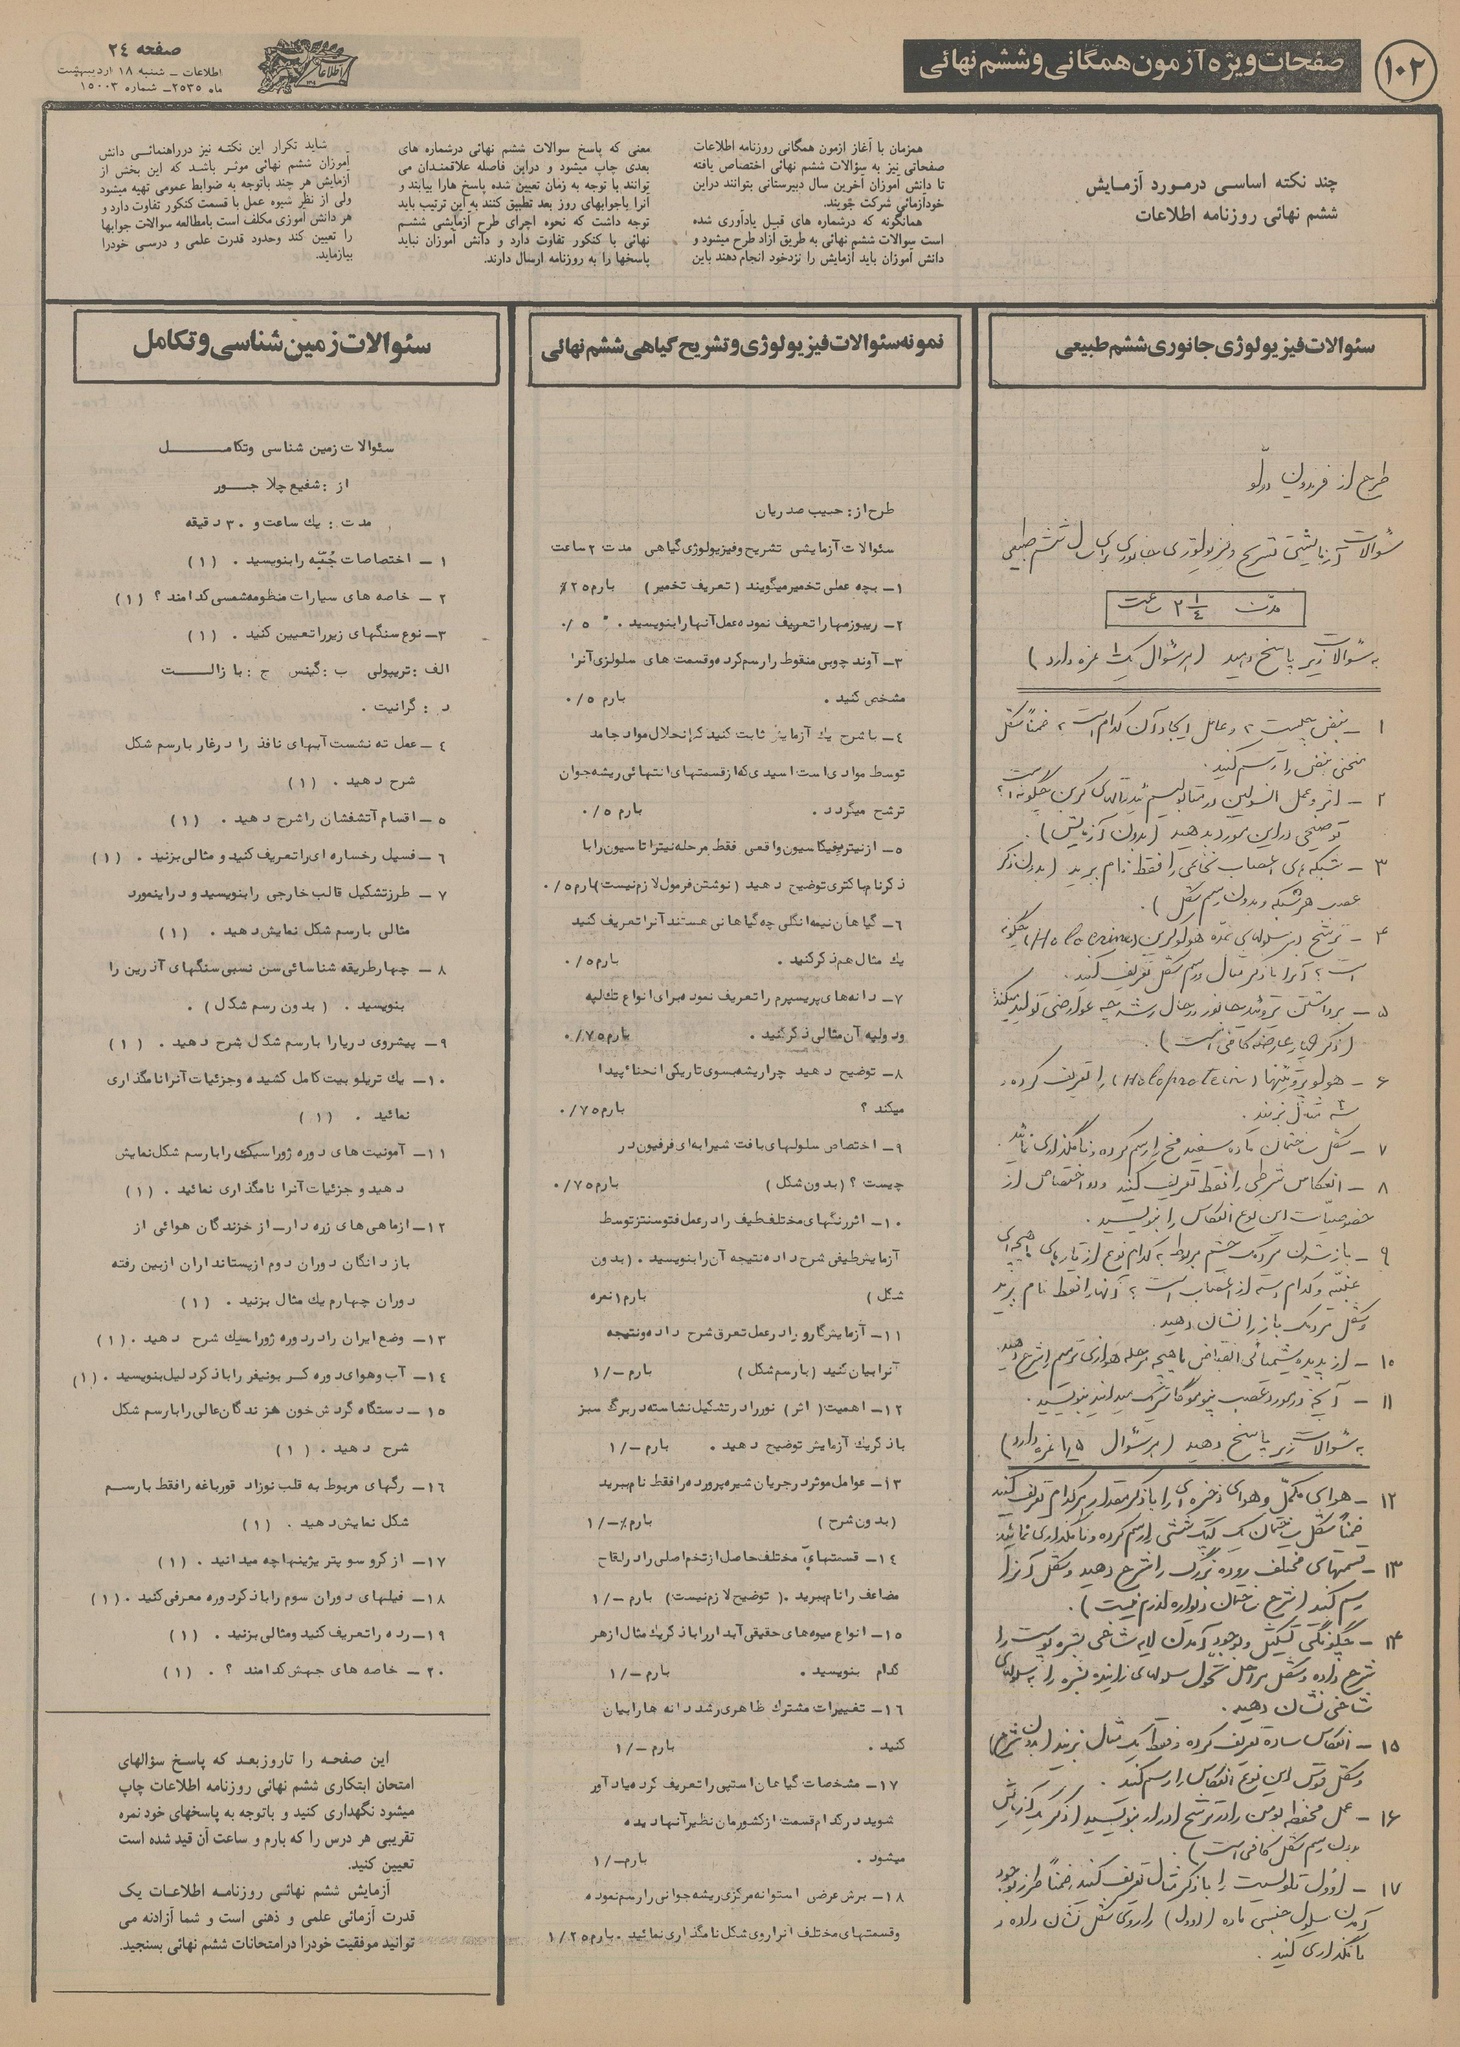 ۱۰۲
صفحات ویژه آزمون همگانی و ششم نهائی
صفحه ۲۴
اطلاعات – شنبه ۱۸ اردیبهشت
ماه ۲۵۳۵– شماره ۱۵۰۰۳
چند نکته اساسی درمورد آزمایش
ششم نهائی روزنامه اطلاعات
همزمان با آغاز ازمون همگانی روزنامه اطلاعات
صفحاتی نیز به سؤالات ششم نهائی اختصاص یافته
تا دانش آموزان آخرین سال دبیرستانی بتوانند دراین
خودآزمائی شرکت جویند.
همانگونه که درشماره های قبل یادآوری شده
است سوالات ششم نهائی به طریق آزاد طرح میشود و
دانش آموزان باید آزمایش را نزدخود انجام دهند باین
معنی که پاسخ سوالات ششم نهائی درشماره های
بعدی چاپ میشود و دراین فاصله علاقمندان می
توانند با توجه به زمان تعیین شده پاسخ هارا بیابند و
آنرا باجوابهای روز بعد تطبیق کنند به این ترتیب باید
توجه داشت که نحوه اجرای طرح آزمایشی ششم
نهائی با کنکور تفاوت دارد و دانش آموزان نباید
پاسخها را به روزنامه ارسال دارند.
شاید تکرار این نکته نیز درراهنمائی دانش
آموزان ششم نهائی موثر باشد که این بخش از
آزمایش هر چند باتوجه به ضوابط عمومی تهیه میشود
ولی از نظر شیوه عمل با قسمت کنکور تفاوت دارد و
هر دانش آموزی مکلف است بامطالعه سوالات جوابها
را تعیین کند وحدود قدرت علمی و درسی خودرا
بیازماید.
سئوالات فیزیولوژی جانوری ششم طبیعی
طرح از فریدون درلّو
سئوالات آزمایشی تشریح و فیزیولوژی جانوری برای سال ششم طبیعی
مدت ۲ ۱/۴ ساعت
به سئوالات زیر پاسخ دهید (هر سئوال یک نمره دارد)
۱ – نبض چیست ؟ و عامل ایجاد آن کدام است ؟ ضمناً شکل
منحنی نبض را رسم کنید.
۲ – اثر و عمل انسولین در متابولیسم ئیدراتهای کربن چگونه است؟
توضیحی دراین مورد بدهید (بدون آزمایش).
۳ – شبکه های اعصاب نخاعی را فقط نام ببرید (بدون ذکر
عصب هر شبکه و بدون رسم شکل).
۴ – ترشح در سلولهای غده هولوکرین (Holocrine) چگونه
است ؟ آنرا با ذکر مثال و رسم شکل تعریف کنید.
۵ – برداشتن تیروئید جانور در حال رشد چه عوارضی تولید میکند
(ذکر چهار عارضه کافی است).
۶ – هولوپروتئینها (Holoprotein) را تعریف کرده و
سه مثال بزنید.
۷ – شکل ساختمان ماده سفید مخ را رسم کرده و نامگذاری نمائید.
۸ – انعکاس شرطی را فقط تعریف کنید و دو اختصاص از
خصوصیات این نوع انعکاس را بنویسید.
۹ – باز شدن مردمک چشم مربوط به کدام نوع از تارهای ماهیچه‌ای
عنبیّه و کدام دسته از اعصاب است ؟ آنها را فقط نام ببرید
و شکل مردمک باز را نشان دهید.
۱۰ – از پدیده شیمیائی انقباض ماهیچه مرحله هوازی ترمیم را شرح دهید.
۱۱ – آنچه در مورد عصب پنوموگاستریک میدانید بنویسید.
به سئوالات زیر پاسخ دهید (هر سئوال ۱/۵ نمره دارد)
۱۲ – هوای مکمل و هوای ذخیره ای را با ذکر مقدار هر کدام تعریف کنید
ضمناً شکل ساختمان یک لبک ششی را رسم کرده و نامگذاری نمائید.
۱۳ – قسمتهای مختلف روده بزرگ را شرح دهید و شکل آنرا
رسم کنید (شرح ساختمان دیواره لازم نیست).
۱۴ – چگونگی تشکیل و بوجود آمدن لایه شاخی بشره پوست را
شرح داده و شکل مراحل تحول سلولهای زاینده بشره را به سلولهای
شاخی نشان دهید.
۱۵ – انعکاس ساده تعریف کرده و فقط یک مثال بزنید (بدون شرح)
و شکل قوس این نوع انعکاس را رسم کنید.
۱۶ – عمل محفظه بومن را در ترشح ادرار بنویسید (ذکر یک آزمایش
بدون رسم شکل کافی است).
۱۷ – اوول تلولسیت را با ذکر مثال تعریف کنید ضمناً طرز بوجود
آمدن سلول جنسی ماده (اوول) را روی شکل نشان داده و
نامگذاری کنید.
نمونه سئوالات فیزیولوژی و تشریح گیاهی ششم نهائی
طرح از : حبیب صدریان
سئوالات آزمایشی تشریح و فیزیولوژی گیاهی مدت ۲ ساعت
۱– بچه عملی تخمیر میگویند (تعریف تخمیر) بارم ۲۵٪
۲– ریبوزمها را تعریف نموده عمل آنها را بنویسید . ۰/۵
۳– آوند چوبی منقوط را رسم کرده و قسمت های سلولزی آنرا
مشخص کنید . بارم ۰/۵
۴– با شرح یک آزمایش ثابت کنید که انحلال مواد جامد
توسط موادی است اسیدی که از قسمتهای انتهائی ریشه جوان
ترشح میگردد . بارم ۰/۵
۵– از نیتریفیکاسیون واقعی فقط مرحله نیتراتاسیون را با
ذکر نام باکتری توضیح دهید (نوشتن فرمول لازم نیست) بارم ۰/۵
۶– گیاهان نیمه انگلی چه گیاهانی هستند آنرا تعریف کنید
یک مثال هم ذکر کنید . بارم ۰/۵
۷– دانه های پریسپرم را تعریف نموده برای انواع تک لپه
و دولپه آن مثالی ذکر کنید . بارم ۰/۷۵
۸– توضیح دهید چرا ریشه بسوی تاریکی انحنا پیدا
میکند ؟ بارم ۰/۷۵
۹– اختصاص سلولهای بافت شیرابه ای فرفیون در
چیست ؟ (بدون شکل) بارم ۰/۷۵
۱۰– اثر رنگهای مختلف طیف را در عمل فتوسنتز توسط
آزمایش طیفی شرح داده نتیجه آن را بنویسید . (بدون
شکل) بارم ۱ نمره
۱۱– آزمایش گارو را در عمل تعرق شرح داده و نتیجه
آنرا بیان کنید (با رسم شکل) بارم –/۱
۱۲– اهمیت (اثر) نور را در تشکیل نشاسته در برگ سبز
با ذکر یک آزمایش توضیح دهید . بارم –/۱
۱۳– عوامل موثر در جریان شیره پرورده را فقط نام ببرید
(بدون شرح) بارم –/۱
۱۴– قسمتهای مختلف حاصل از تخم اصلی را در لقاح
مضاعف را نام ببرید . (توضیح لازم نیست) بارم –/۱
۱۵– انواع میوه های حقیقی آبدار را با ذکر یک مثال از هر
کدام بنویسید . بارم –/۱
۱۶– تغییرات مشترک ظاهری رشد دانه ها را بیان
کنید . بارم –/۱
۱۷– مشخصات گیاهان استپی را تعریف کرده یادآور
شوید در کدام قسمت از کشورمان نظیر آنها دیده
میشود . بارم –/۱
۱۸– برش عرضی استوانه مرکزی ریشه جوانی را رسم نموده
و قسمتهای مختلف آنرا روی شکل نامگذاری نمائید . بارم ۱/۲۵
سئوالات زمین شناسی و تکامل
سئوالات زمین شناسی وتکامل
از : شفیع چلاجور
مدت : یک ساعت و ۳۰ دقیقه
۱ – اختصاصات جُبّه را بنویسید . (۱)
۲ – خاصه های سیارات منظومه شمسی کدامند ؟ (۱)
۳– نوع سنگهای زیر را تعیین کنید . (۱)
الف : تریپولی ب : گینس ج : بازالت
د : گرانیت .
۴ – عمل ته نشست آبهای نافذ را در غار با رسم شکل
شرح دهید . (۱)
۵ – اقسام آتشفشان را شرح دهید . (۱)
۶ – فسیل رخساره ای را تعریف کنید و مثالی بزنید . (۱)
۷ – طرز تشکیل قالب خارجی را بنویسید و در اینمورد
مثالی با رسم شکل نمایش دهید . (۱)
۸ – چهار طریقه شناسائی سن نسبی سنگهای آذرین را
بنویسید . (بدون رسم شکل) .
۹ – پیشروی دریا را با رسم شکل شرح دهید . (۱)
۱۰– یک تریلوبیت کامل کشیده و جزئیات آنرا نامگذاری
نمائید . (۱)
۱۱– آمونیت های دوره ژوراسیک را با رسم شکل نمایش
دهید و جزئیات آنرا نامگذاری نمائید . (۱)
۱۲– از ماهی های زره دار – از خزندگان هوائی از
بازدانگان دوران دوم از پستانداران از بین رفته
دوران چهارم یک مثال بزنید . (۱)
۱۳– وضع ایران را در دوره ژوراسیک شرح دهید . (۱)
۱۴– آب وهوای دوره کربونیفر را با ذکر دلیل بنویسید . (۱)
۱۵– دستگاه گردش خون خزندگان عالی را با رسم شکل
شرح دهید . (۱)
۱۶– رگهای مربوط به قلب نوزاد قورباغه را فقط با رسم
شکل نمایش دهید . (۱)
۱۷– از کروسوپتریژینها چه میدانید . (۱)
۱۸– فیلهای دوران سوم را با ذکر دوره معرفی کنید . (۱)
۱۹– رده را تعریف کنید و مثالی بزنید . (۱)
۲۰– خاصه های جهش کدامند ؟ . (۱)
این صفحه را تاروزبعد که پاسخ سؤالهای
امتحان ابتکاری ششم نهائی روزنامه اطلاعات چاپ
میشود نگهداری کنید و باتوجه به پاسخهای خود نمره
تقریبی هر درس را که بارم و ساعت آن قید شده است
تعیین کنید.
آزمایش ششم نهائی روزنامه اطلاعات یک
قدرت آزمائی علمی و ذهنی است و شما آزادنه می
توانید موفقیت خودرا درامتحانات ششم نهائی بسنجید.